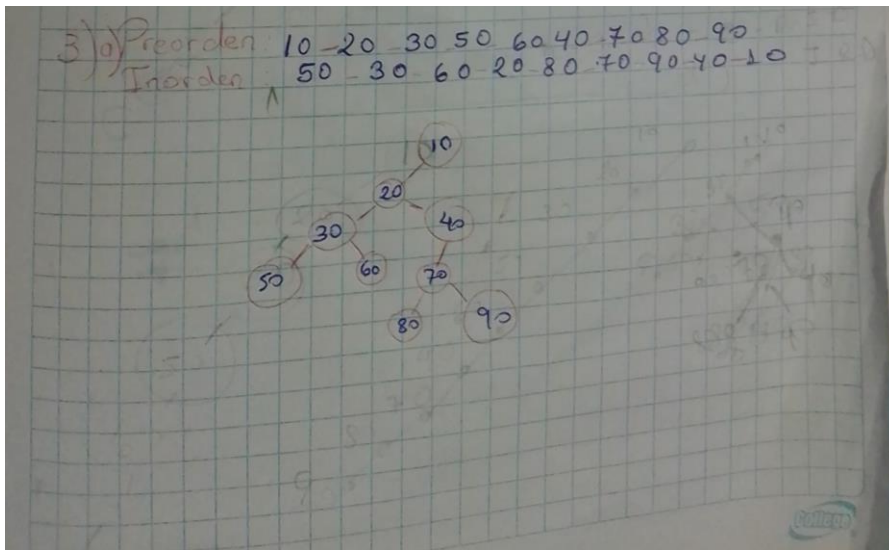 3) a) Preorden 10 - 20 - 30 50 60 40 70 80 - 90
Inorden 50 - 30 - 60 - 20 - 80 - 70 - 90 - 40 - 10
10
20
30 40
50 60 70
80 90
College